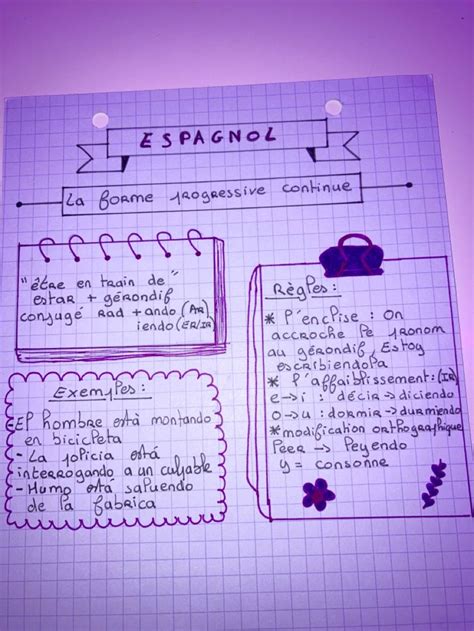 ESPAGNOL
La forme progressive continue
"être en train de"
estar + gérondif
conjugé rad + ando (AR)
iendo (ER/IR)
Exemples :
- El hombre está montando
en bicicleta
- La policia está
interrogando a un culpable
- Humo está saliendo
de la fabrica
Règles :
* l'enclise : On
accroche le pronom
au gérondif, Estoy
escribiendola
* l'affaiblissement : (IR)
e → i : décir → diciendo
o → u : dormir → durmiendo
* modification orthographique
leer → leyendo
y = consonne